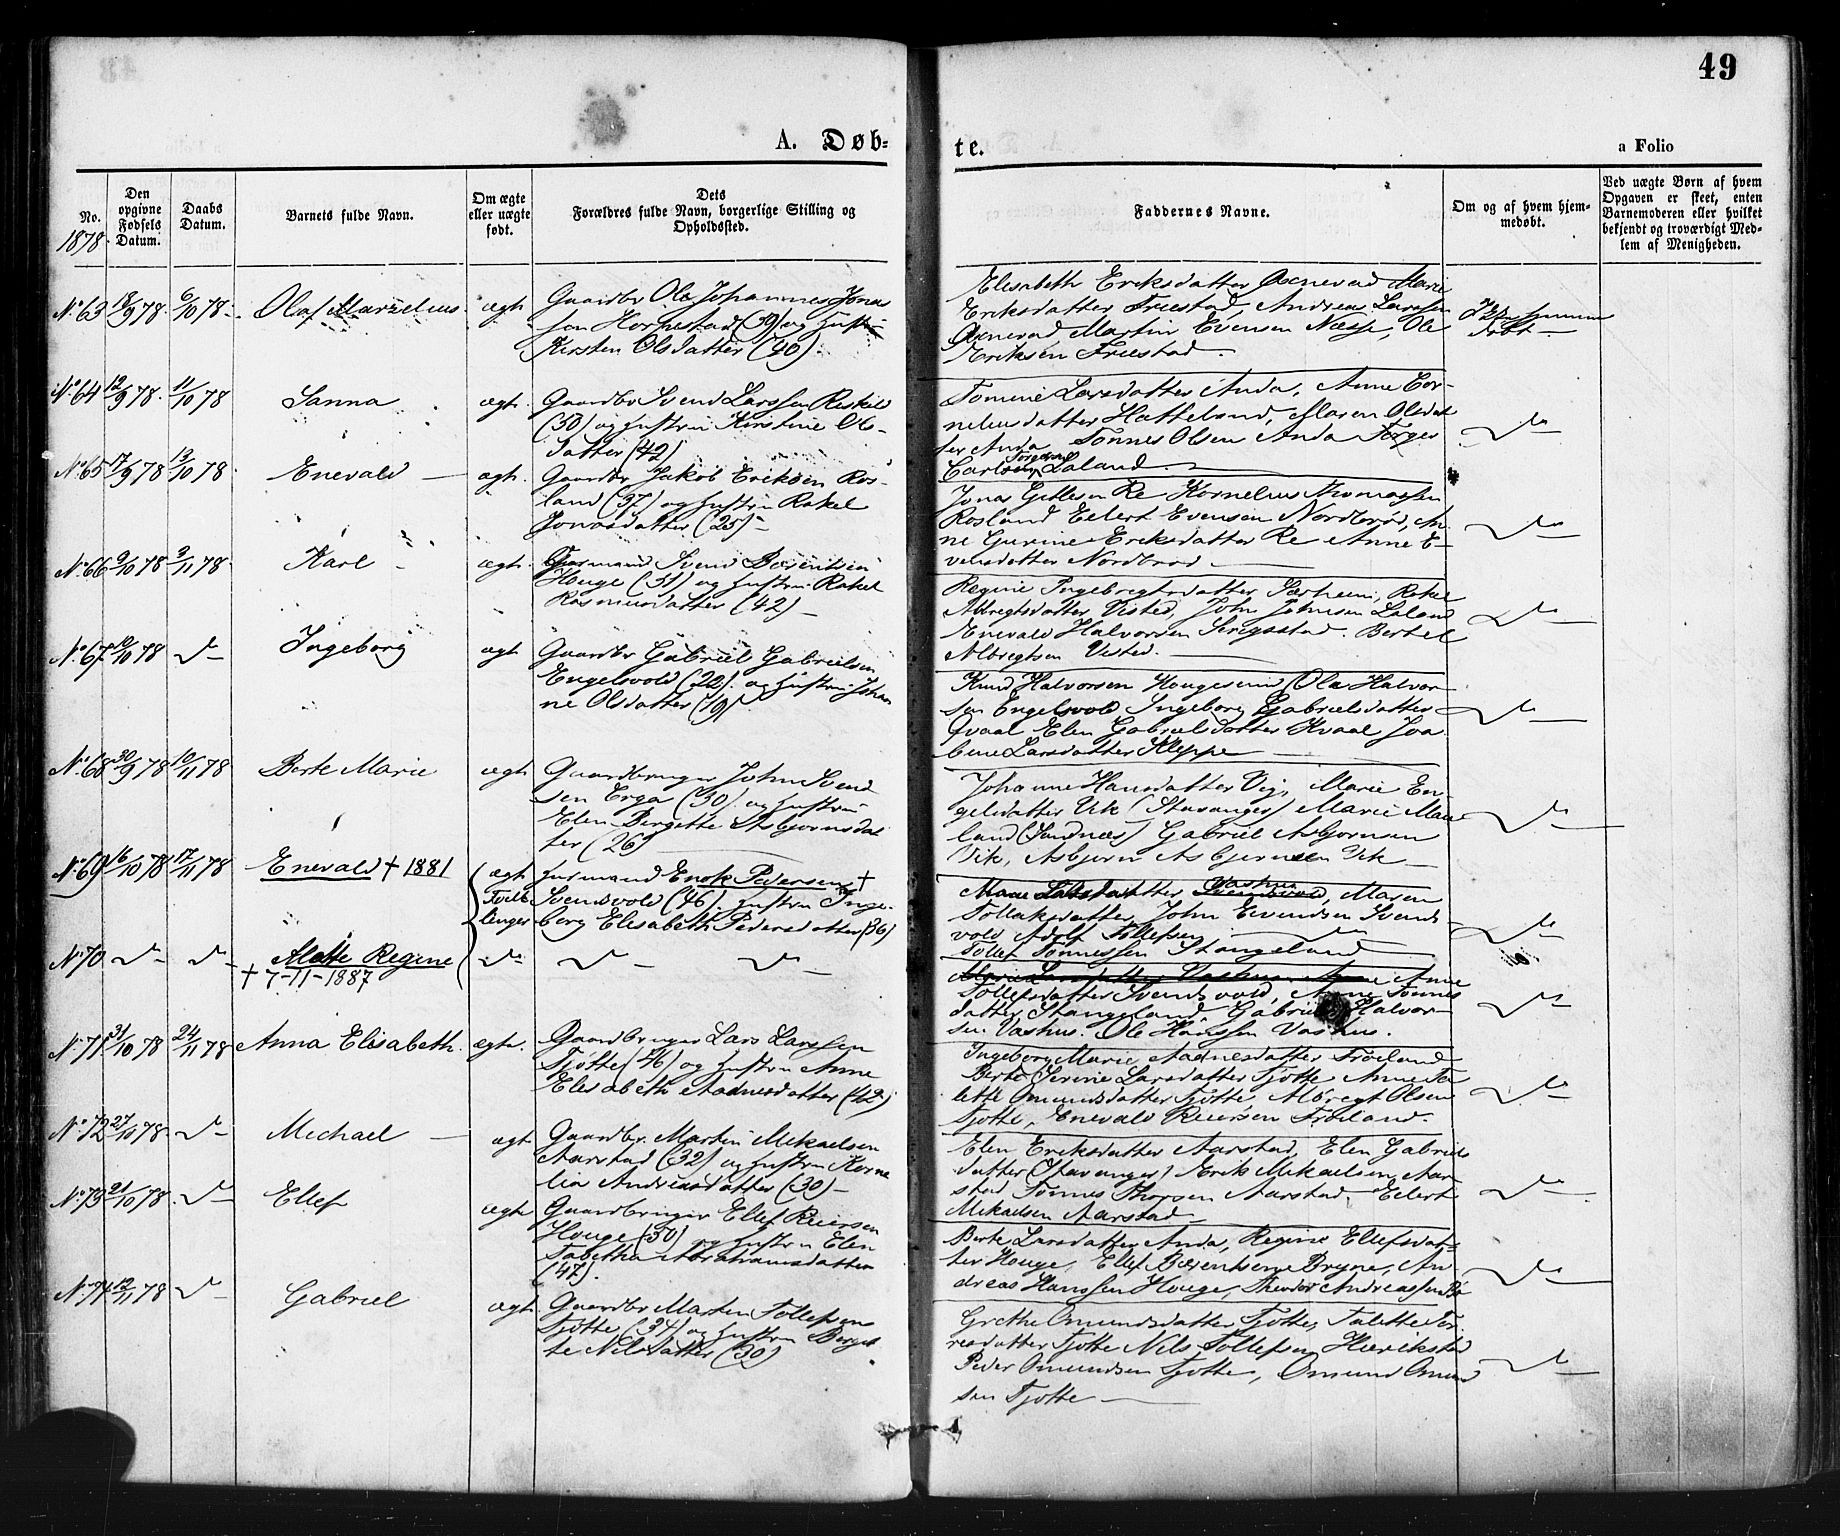 49
A. Døb-
te.
a Folio
No.
1878
Den opgivne Fødsels Datum.
Daabs Datum.
Barnets fulde Navn.
Om ægte eller uægte født.
Dets Forældres fulde Navn, borgerlige Stilling og Opholdssted.
Faddernes Navne.
Om og af hvem hjemmedøbt.
Ved uægte Børn af hvem Opgaven er skeet, enten Barnemoderen eller hvilket bekjendt og troværdigt Medlem af Menigheden.
No 63 18/9 78. 6/10 78. Olaf Marselius ægt.
Gaardbr Ole Johannes Jonas
sen Hognestad (39) og hustru
Kirsten Olsdatter (40).
Elisabeth Eriksdatter Øxnevad Marie
Eriksdatter Friestad, Andreas Larssen
Øxnevad, Martin Evensen Næsse, Ole
Eriksen Friestad.
Ikke hjemme
døbt
No 64 12/9 78. 11/10 78 Sanna ægt.
Gaardbr Svend Larssen Reskeld
(30) og hustru Kirstine Ols-
datter (42)
Tomine Larsdatter Anda, Anne Cor-
neliusdatter Hatteland, Maren Olsdat
ter Anda Tønnes Olsen Anda Torger
Carlsen Laland.
No 65 17/9 78 13/10 78 Enevald ægt.
Gaardbr Jakob Eriksen Ros-
land (37) og hustru Rakel
Jonasdatter (25)
Jonas Gitlesen Re Kornelius Thomassen
Rosland Eilert Evensen Nordbrød, An-
ne Gurine Eriksdatter Re Anne E-
vensdatter Nordbrød
No 66 9/10 78 3/11 78. Karl ægt.
Husmand Svend Bærentsen
Houge (31) og hustru Rakel
Rasmusdatter (42)
Regine Ingebrigtsdatter Sæsheim, Rakel
Albregtsdatter Visted, John Johnsen Laland
Enevald Halvorsen Serigstad. Bertel
Albregtsen Visted.
No 67 10/10 78 Ingeborg ægt
Gaardbr Gabriel Gabrielsen
Engelsvold (22). og hustru Johan
ne Olsdatter (19)
Knud Halvorsen Hougesund Ola Halvor-
sen Engelsvold Ingeborg Gabrielsdatter
Qvaal Elen Gabrielsdatter Kvaal Joa
kine Larsdatter Kleppe
No 68 30/9 78 10/11 78 Berte Marie ægt.
Gaardbruger John Svend
sen Erga (30). og hustru
Elen Bergitte Asbjørnsdat
ter (26)
Johanne Hansdatter Vig, Marie En-
gelsdatter Vik (Stavanger) Marie Mau-
land (Sandnes) Gabriel Asbjørnsen
Vik, Asbjørn Asbjørnsen Vik
No 69 16/10 78 17/11 78 Enevald † 1881
ægt
Tvil-
linger
Husmand Enok Pedersen †
Svendsvold (46). hustru Inge-
borg Elisabeth Pedersdatter (36)
Vashus
Tollaksdatter, John Evendsen Svends
vold Adolf Tollefsen
Tollef Tønnessen Stangeland
No 70 Alette Regine
† 7-11-1887
Anne
Tollefsdatter Svendsvold, Anne Tønnes
datter Stangeland Gabriel Halvor-
sen Vashus. Ole Hanssen Vashus.
No 71 31/10 78 24/11 78 Anna Elisabeth. ægte.
Gaardbruger Lars Larssen
Tjøtte (46) og hustru Anne
Elisabeth Aadnesdatter (42)
Ingeborg Marie Aadnesdatter Frøiland
Berte Serine Larsdatter Tjøtte, Anne Ta
lette Omundsdatter Tjøtte, Albregt Olsen
Tjøtte, Enevald Reiersen Frøiland.
No 72 27/10 78 Michael ægt.
Gaardbr. Martin Mikaelsen
Aarstad (32) og hustru Korne
lia Andreasdatter (30)
Elen Eriksdatter Aarstad, Elen Gabriels
datter (Stavanger) Erik Mikaelsen Aar-
stad Tønnes Thorsen Aarstad. Eilert
Mikaelsen Aarstad
No 73 21/10 78. Ellef ægt
Gaardbruger Ellef Reiersen
Houge (50) og hustru Elen
Tabitha Abrahamsdatter
(47).
Berte Larsdatter Anda, Regine Ellefsdat-
ter Houge, Ellef Bærentsen Bryne, An
dreas Hanssen Houge, Theodor Andreassen
No 74 12/11 78 Gabriel ægt.
Gaardbr Marten Tollefsen
Tjøtte (34) og hustru Berget
te Nilsdatter (30)
Grethe Omundsdatter Tjøtte, Talette Tor
resdatter Tjøtte Nils Tollefsen Hærikstad
Peder Omundsen Tjøtte, Omund Omund
sen Tjøtte